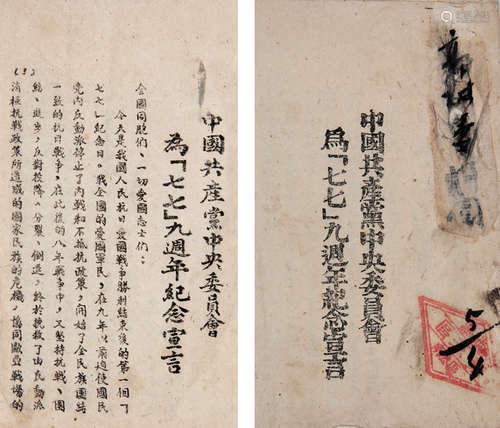 中國共産黨中央委員會
為「七七」九週年紀念宣言
全國同胞們、一切愛國志士們：
今天是我國人民抗日愛國戰爭勝利結束後的第一個「
七七」紀念日。我全國的愛國軍民，在九年以前迫使國民
黨內反動派停止了內戰和不抵抗政策，開始了全民族團結
一致的抗日戰爭，在此後的八年戰爭中，又堅持抗戰、團
結、進步，反對投降、分裂、倒退，終於挽救了由反動派
消極抗戰政策所造成的國家民族的危機，協同歐亞戰場的
(1)
中國共産黨中央委員會
為「七七」九週年紀念宣言
5/4